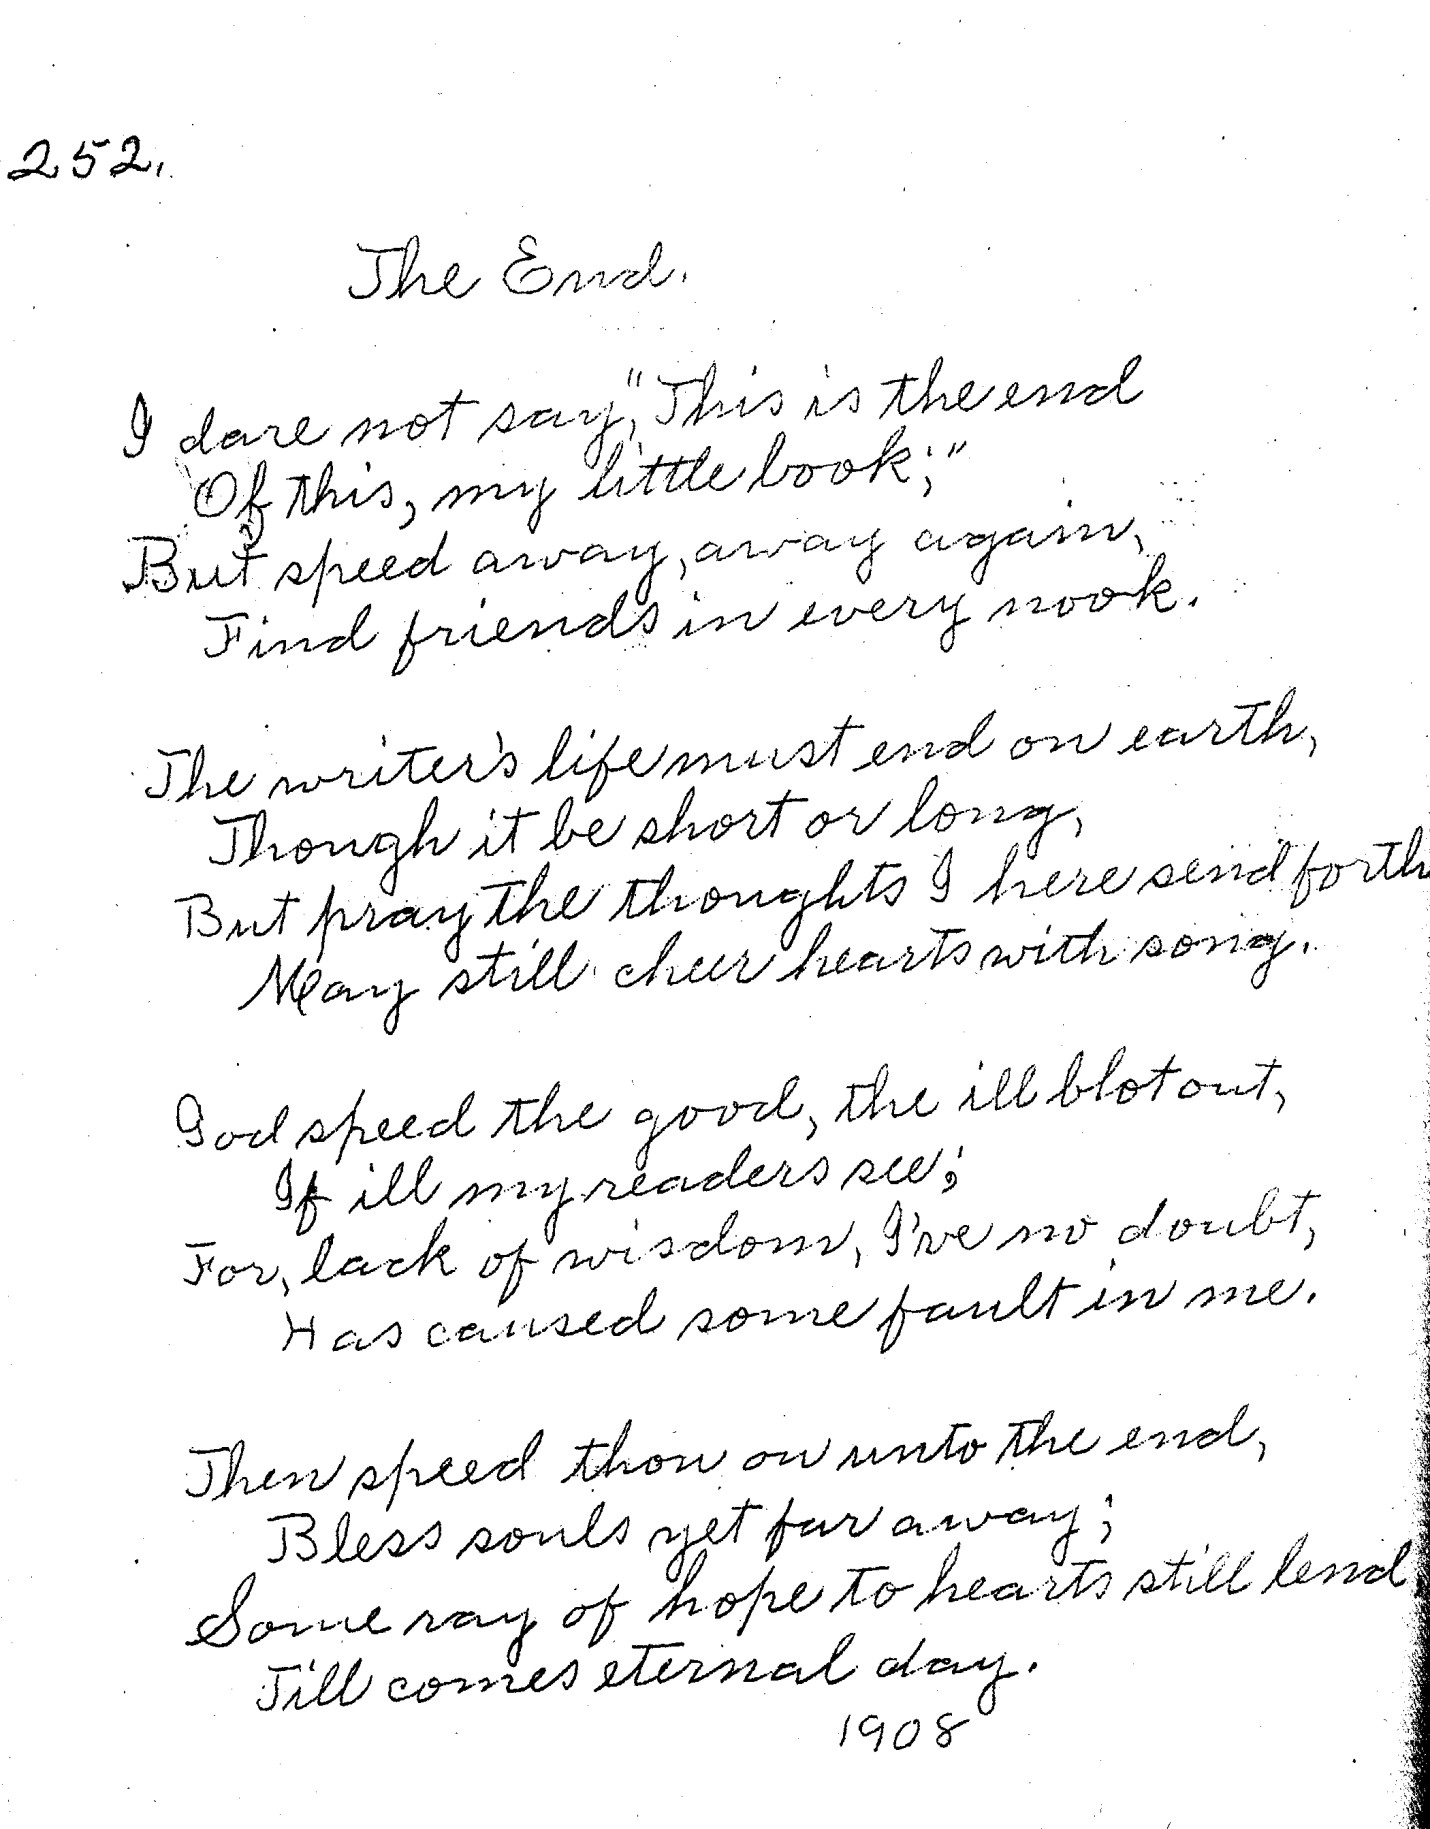 252.
The End.
I dare not say, "This is the end
Of this, my little book;"
But speed away, away again,
Find friends in every nook.
The writer's life must end on earth,
Though it be short or long,
But pray the thoughts I here send forth
May still cheer hearts with song.
God speed the good, the ill blot out,
If ill my readers see;
For, lack of wisdom, I've no doubt,
Has caused some fault in me.
Then speed thou on unto the end,
Bless souls yet far away;
Some ray of hope to hearts still lend
Till comes eternal day.
1908